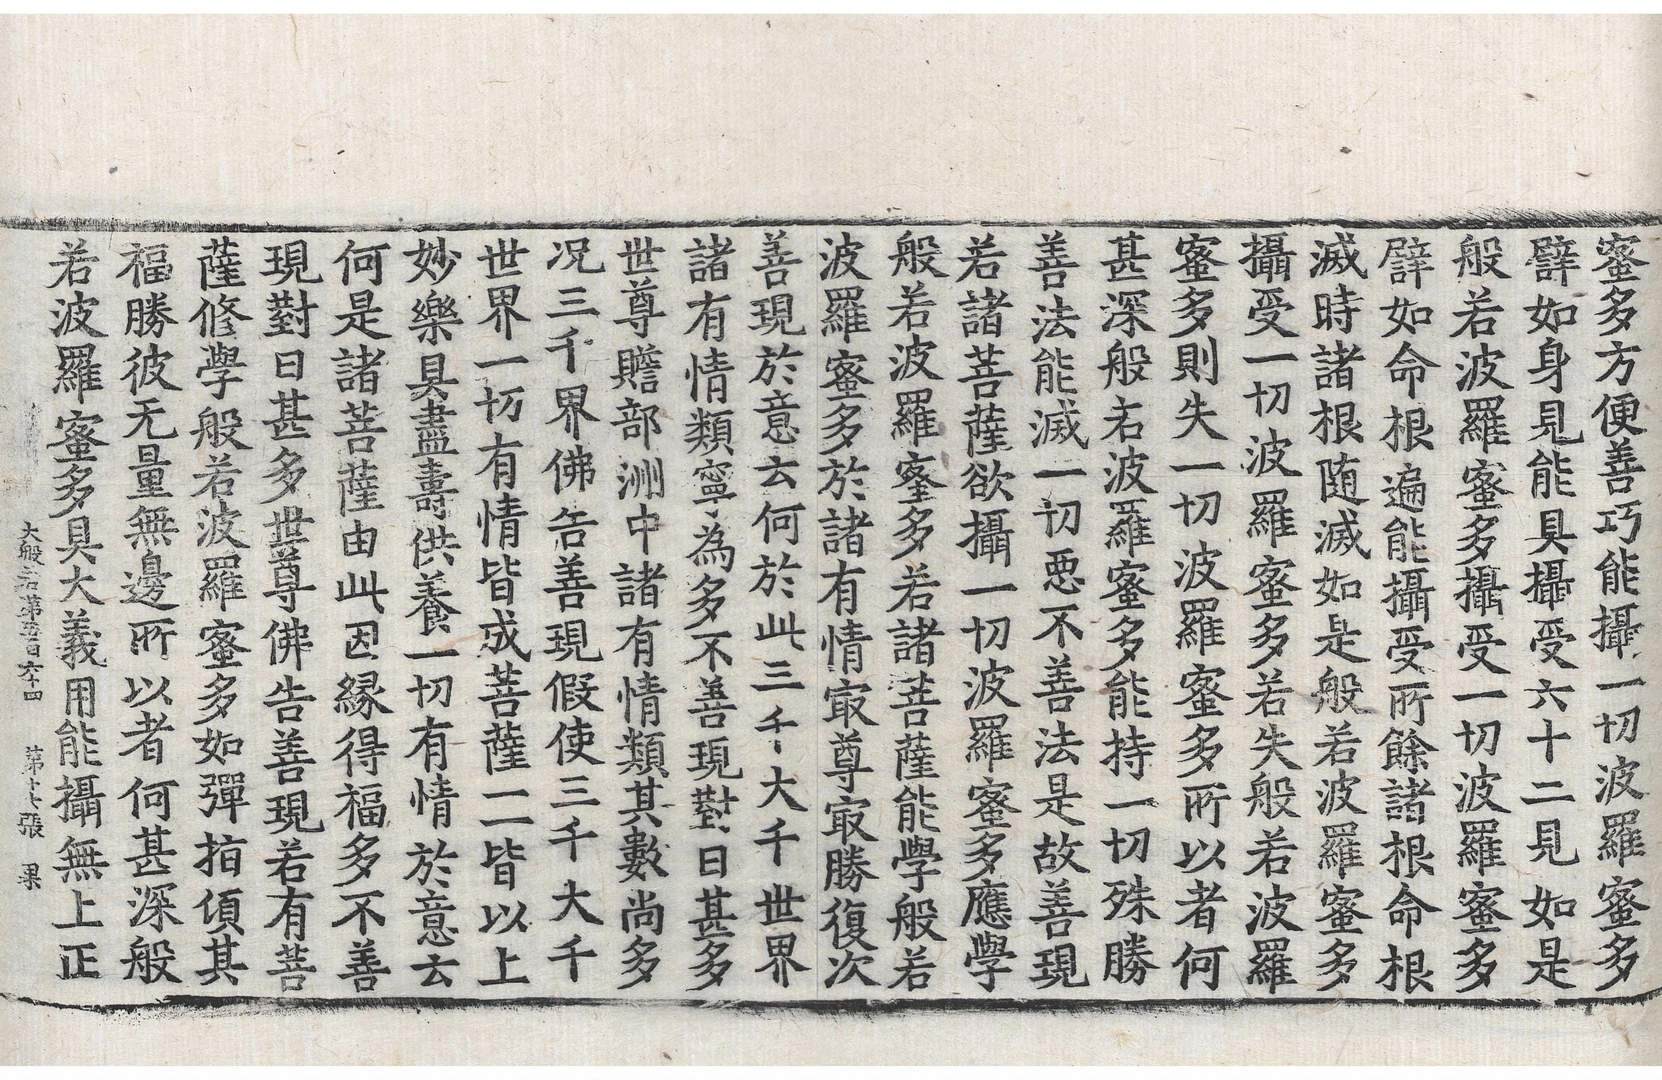 蜜多方便善巧能攝一切波羅蜜多
譬如身見能具攝受六十二見如是
般若波羅蜜多攝受一切波羅蜜多
譬如命根遍能攝受所餘諸根命根
滅時諸根随滅如是般若波羅蜜多
攝受一切波羅蜜多若失般若波羅
蜜多則失一切波羅蜜多所以者何
甚深般若波羅蜜多能持一切殊勝
善法能滅一切惡不善法是故善現
若諸菩薩欲攝一切波羅蜜多應學
般若波羅蜜多若諸菩薩能學般若
波羅蜜多於諸有情㝡尊㝡勝復次
善現於意云何於此三千大千世界
諸有情類寧為多不善現對曰甚多
世尊贍部洲中諸有情類其數尚多
况三千界佛告善現假使三千大千
世界一切有情皆成菩薩一一皆以上
妙樂具盡壽供養一切有情於意云
何是諸菩薩由此因緣得福多不善
現對曰甚多世尊佛告善現若有菩
薩修學般若波羅蜜多如彈指頃其
福勝彼无量無邊所以者何甚深般
若波羅蜜多具大義用能攝無上正
大般若第五百五十四　第十七張　果